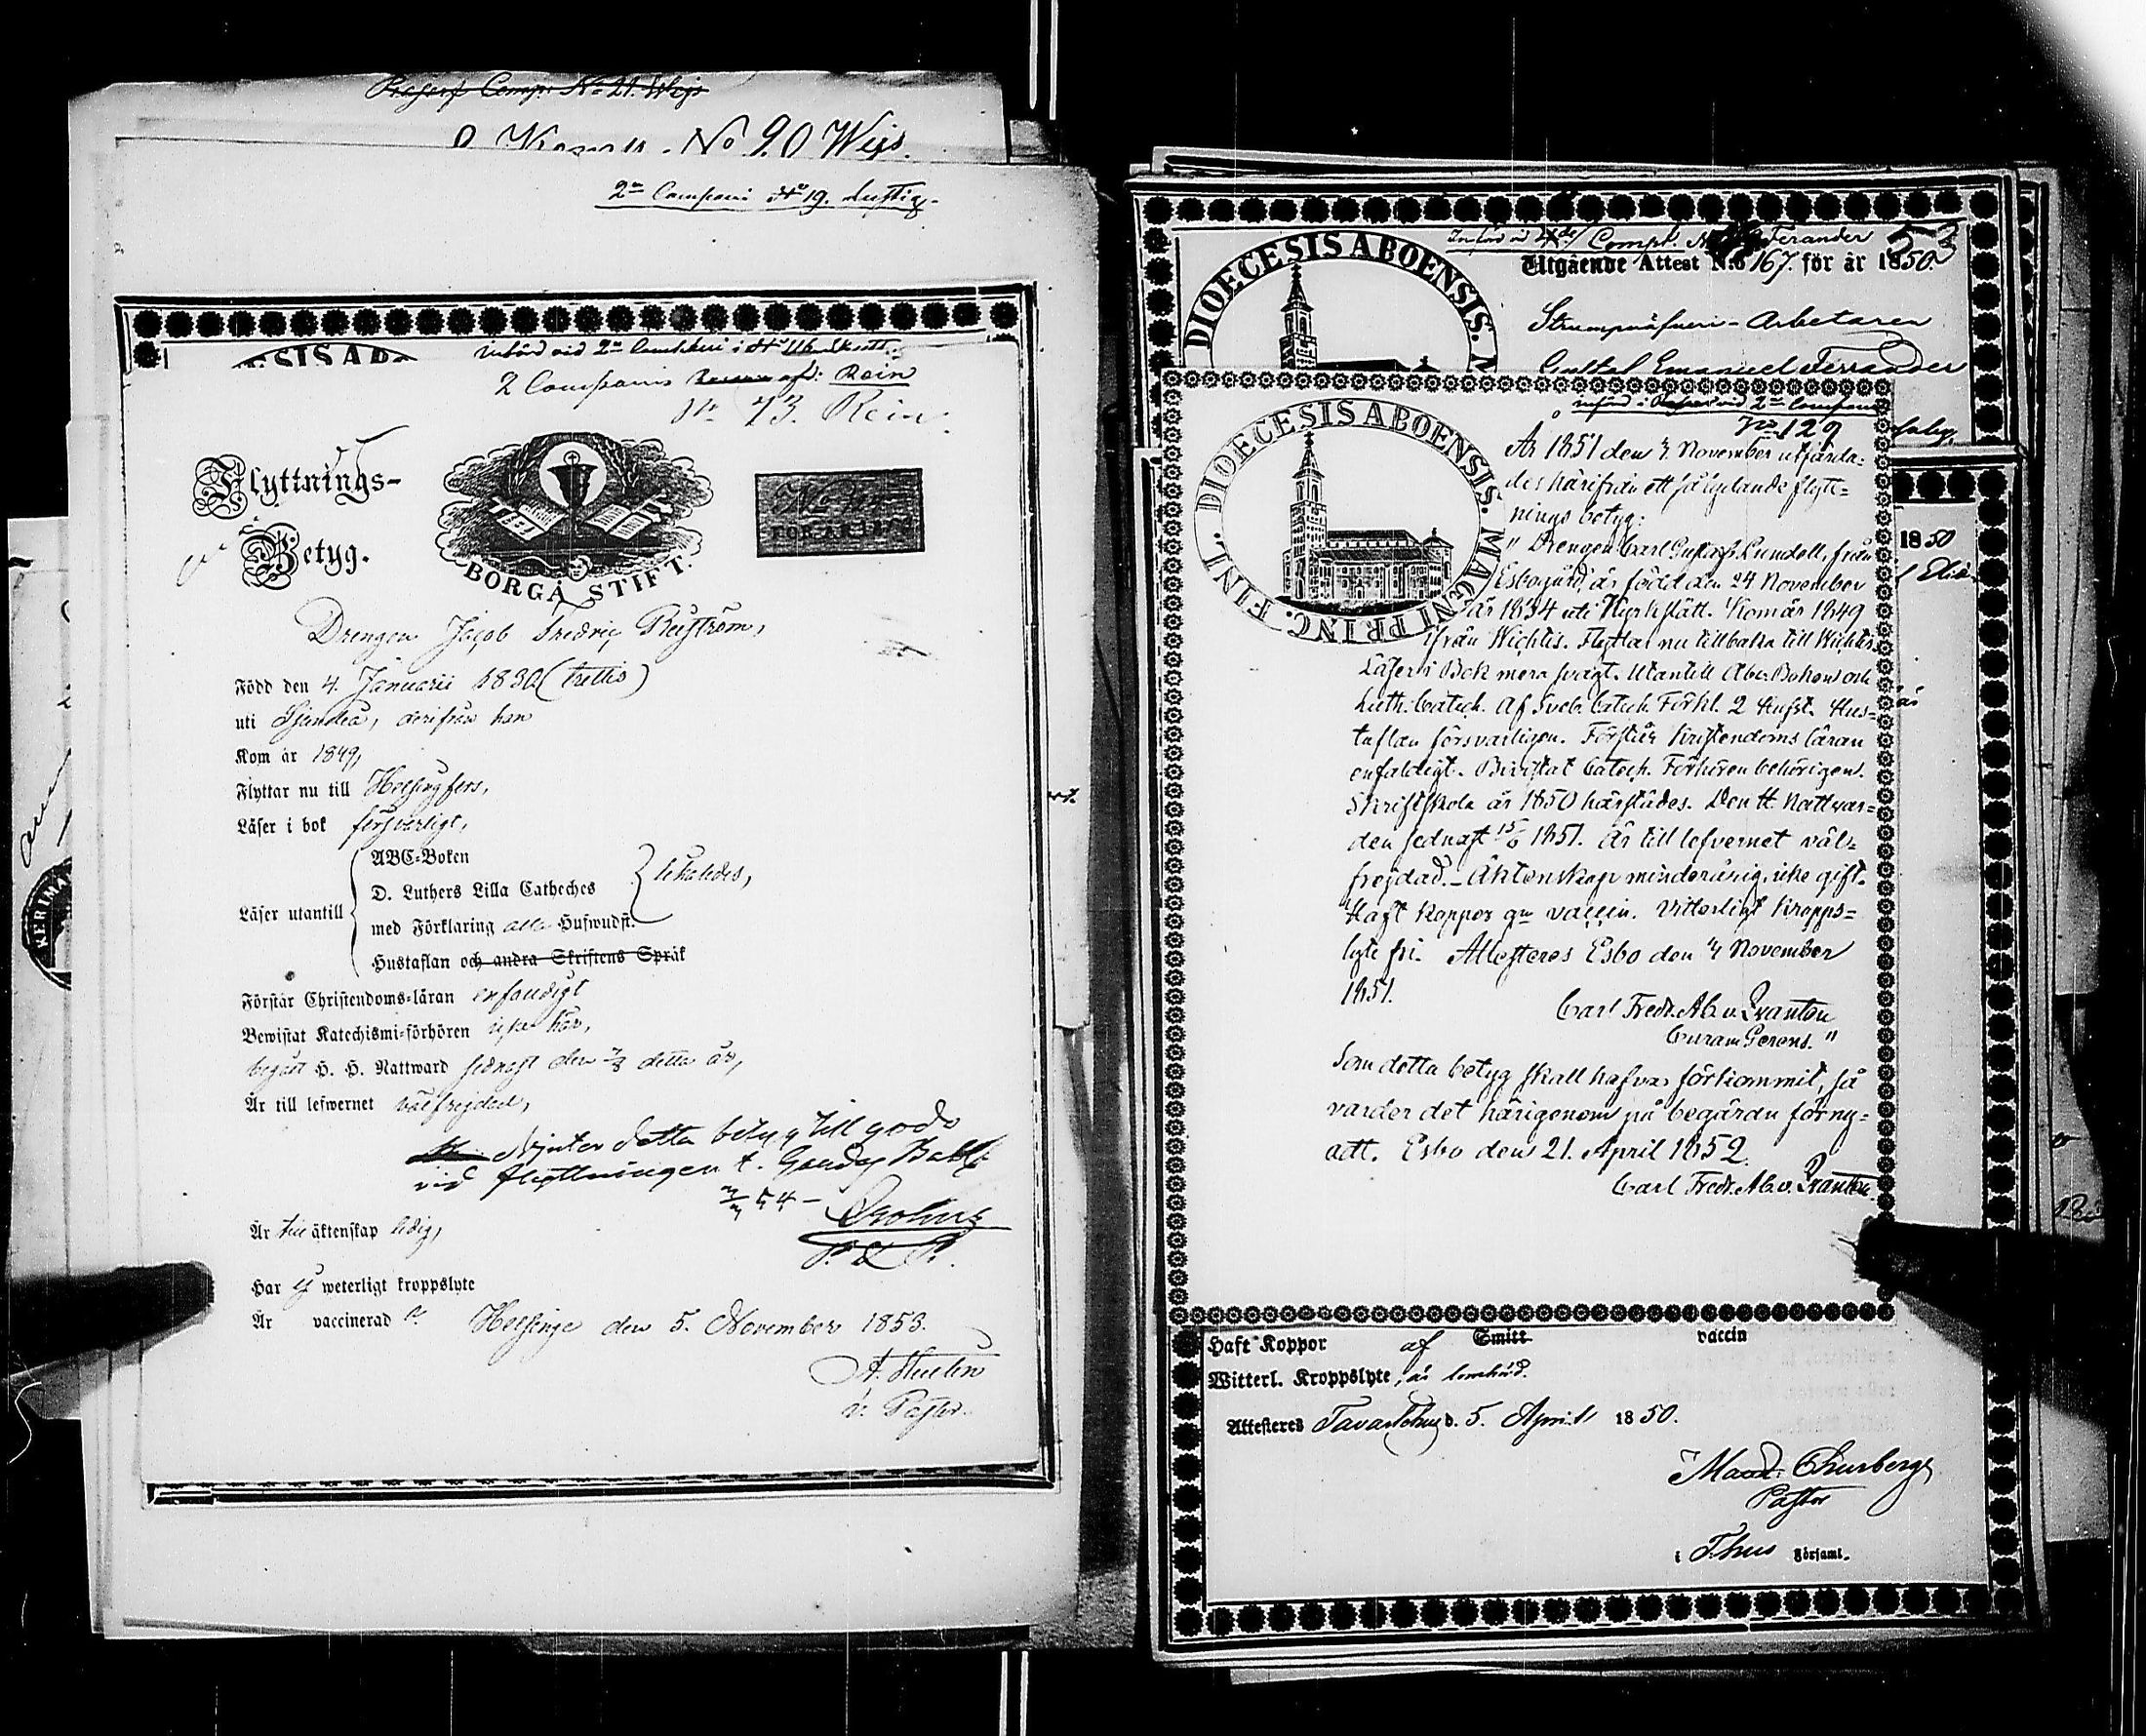 Comp: No 21. Wigs
No 20 Wigs.
2a Compani No 19. Lustig.
införd vid 2a Compani
2 Companis afd: Rein
No 73. Rein.
Flyttnings-
Betyg.
BORGÅ STIFT.
FÖR ÅR 18
Drengen Jacob Fredric
Född den 4. Januarii 1830 (trettio)
uti Sjundeå, derifrån han
Kom år 1849,
Flyttar nu till Helsingfors,
Läser i bok försvarligt,
Läser utantill
ABC-Boken
D. Luthers Lilla Catheches
med Förklaring alla Hufwudst.
Hustaflan och andra Skriftens Språk
likaledes,
Förstår Christendoms-läran enfaldigt
Bewistat Katechismi-förhören icke här,
begått H. H. Nattward sednast den detta år,
Är till lefwernet välfrejdad,
Njuter detta betyg till godo
vid flyttningen t.
54 -
Är till äktenskap ledig,
Har ej weterligt kroppslyte
Är vaccinerad
Helsinge den 5. November 1853.
v. Pastor.
KERIMÄ
DIOECESIS ABOENSIS. M
Införd vid Comp. No Ferander 53
Utgående Attest N:o 167. för år 1850.
Strumpväfveri-Arbetaren
Gustaf Emanuel Ferrander
införd i vid 2a Compani
No 129
DIOECESIS ABOENSIS. MAGNI PRINC. FINL.
År 1851 den 4 November utfärda-
des härifrån ett så lydande flytt-
nings betyg:
"Drengen Carl Gustaf Lundell, från
Esbogård, är född den 24 November
år 1834 uti Kyrkslätt. Kom år 1849
ifrån Wichtis. Flyttar nu tillbaka till Wichtis.
Läser i Bok mera svagt. Utantill Abc Boken och
Luth. Catech. Af Sveb. Catech. Förkl. 2 Hufst. Hus-
taflan försvarligen. Förstår Kristendoms läran
enfaldigt. Bivistat Catech. Förhören behörigen.
Skriftskola år 1850 härstädes. Den H. Nattvar-
den sednast 15/6 1851. Är till lefvernet väl-
frejdad. - Äktenskap minderårig, icke gift.
Haft Koppor gm vaccin. Vitterligt Kropps-
lyte fri. Attesteras Esbo den 4 November
1851.
Carl Fredr. Ab. v. Qvanten
Curam Gerens. "
Som detta betyg skall hafva förkommit, så
varder det härigenom på begäran förny-
adt. Esbo den 21. April 1852.
Carl Fredr. Ab. v. Qvanten.
1850
Haft Koppor af Smitt vaccin
Witterl. Kroppslyte, är lomhörd.
Attesteres Tavastehus d. 5. April 1850.
Thurberg
Pastor
i T:hus Församl.